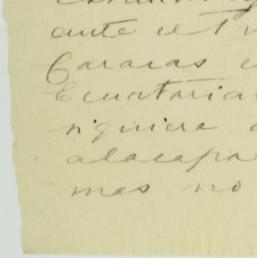 ante el
Caracas
Ecuatoria
siquiera a
a la capa
mas no